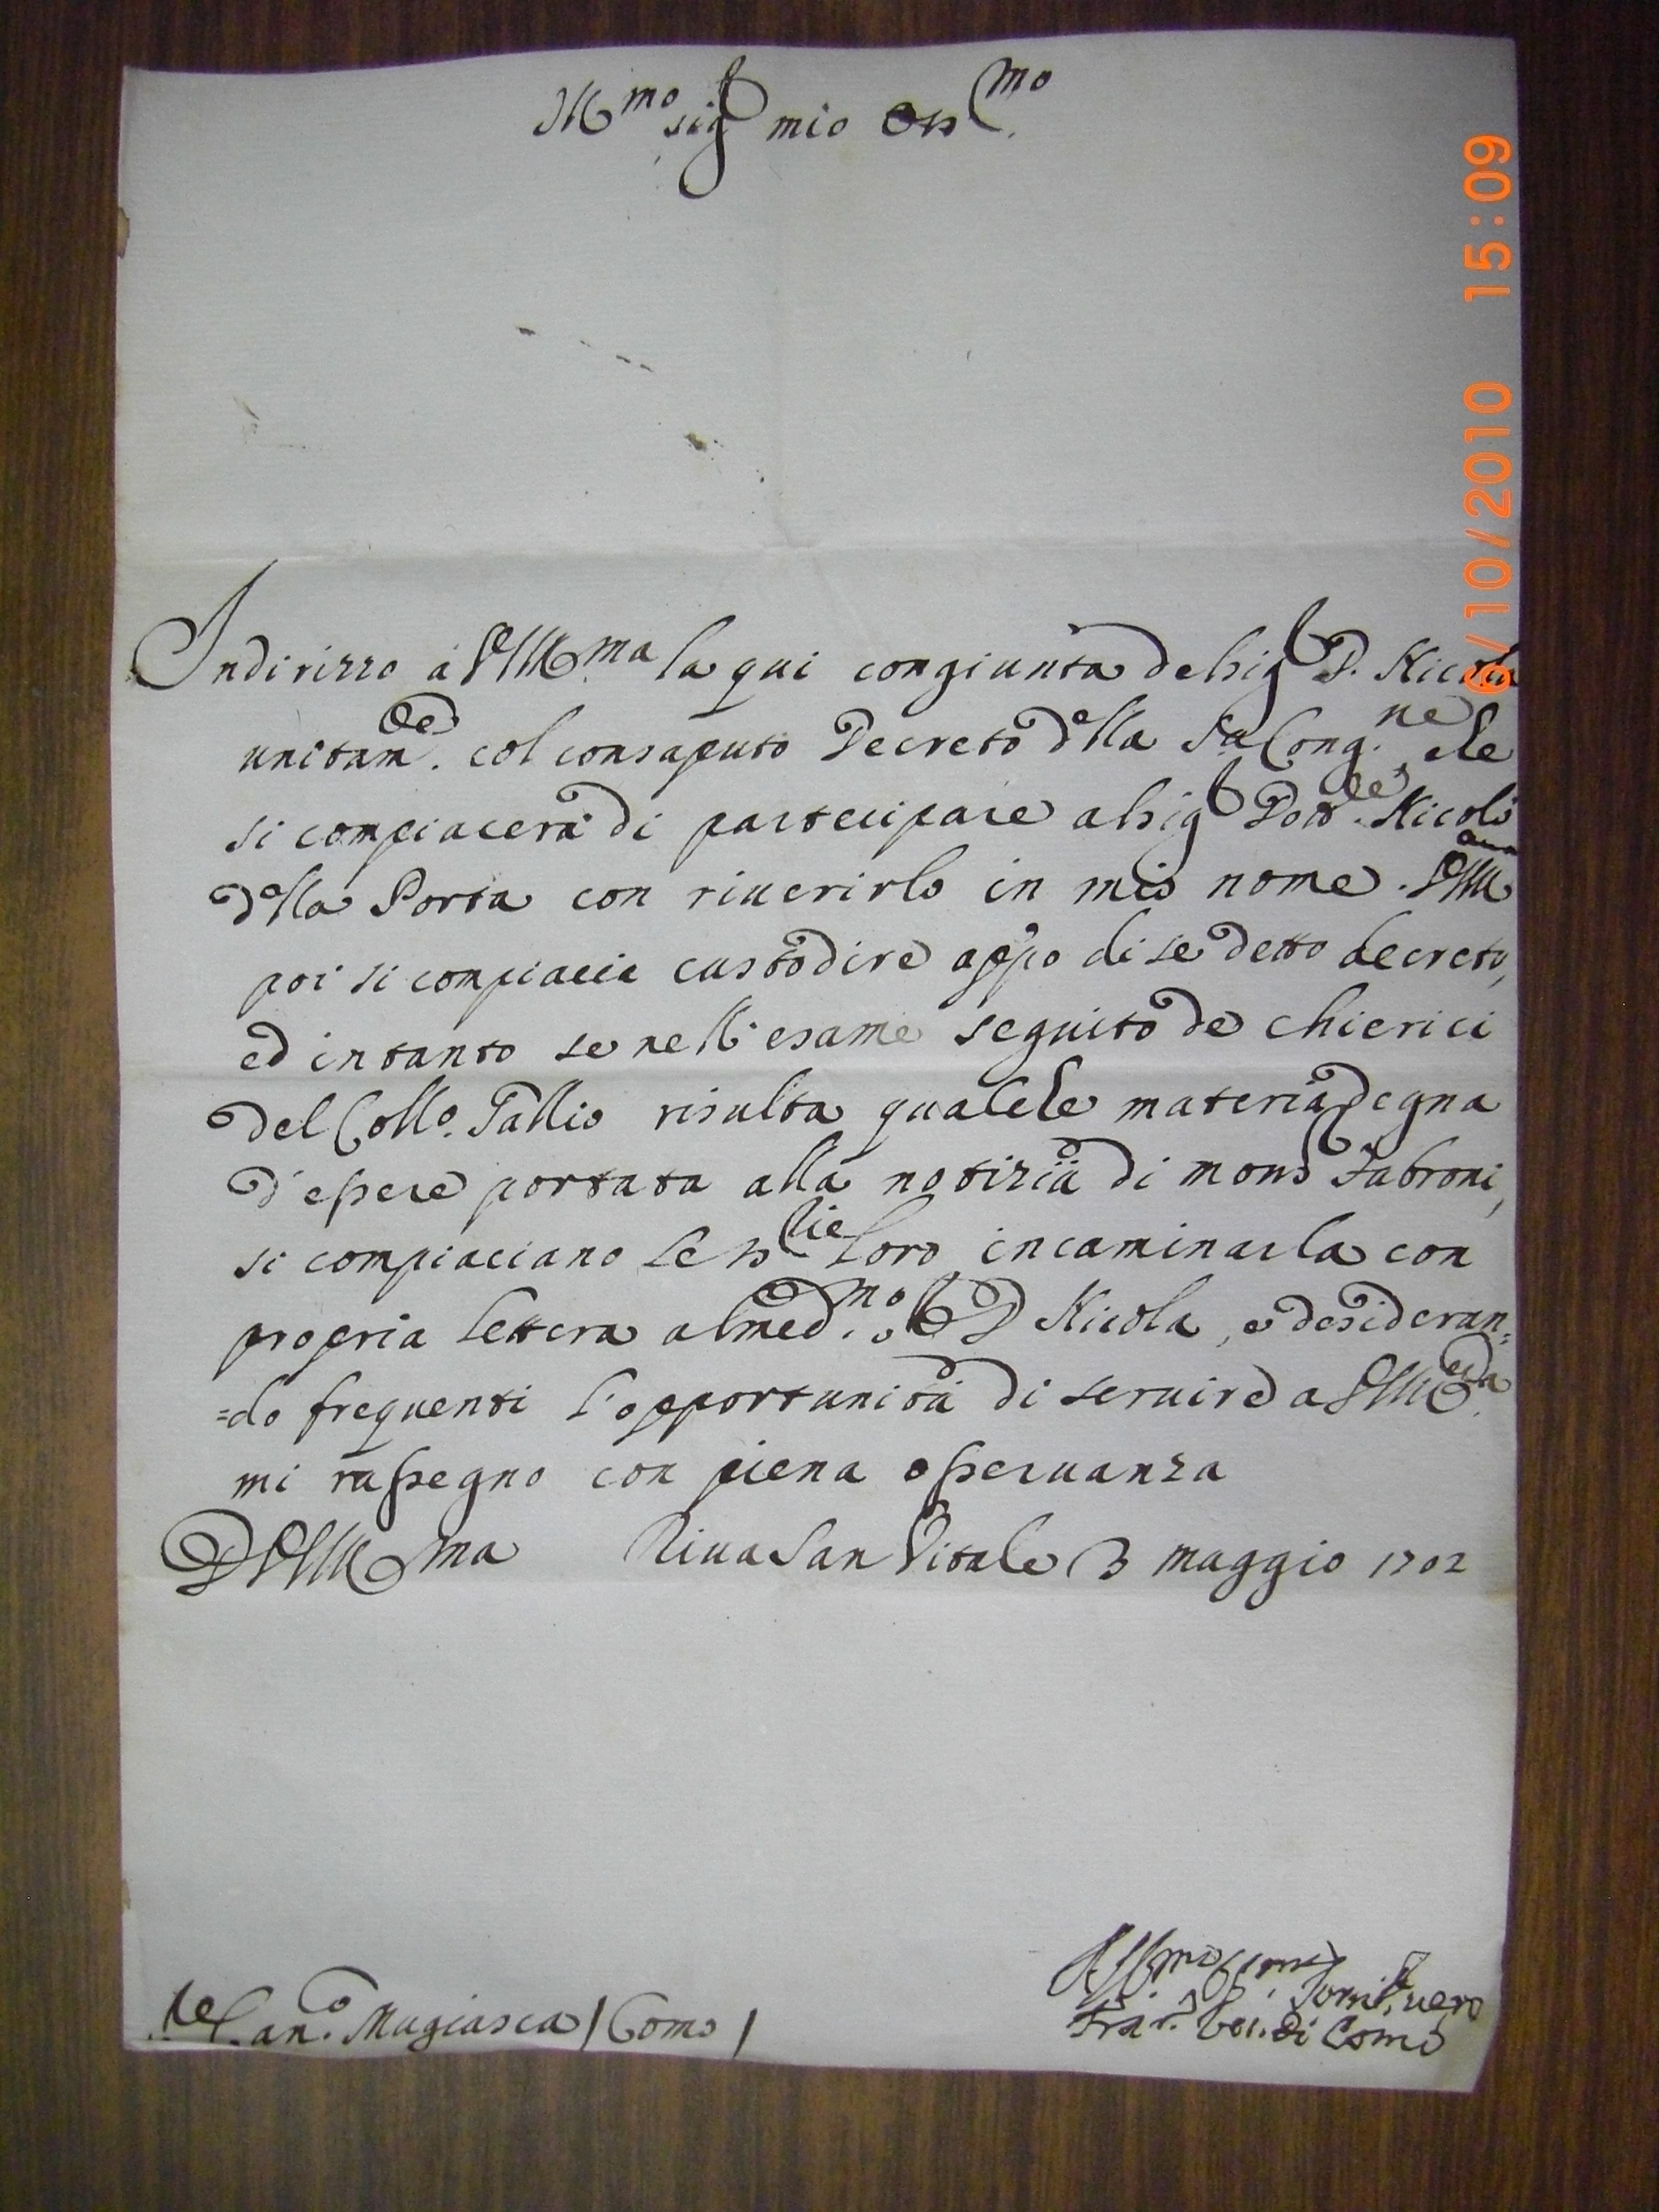 Ill.mo sig.r mio Oss.mo
Indirizzo à V.S. Ill.ma la qui congiunta del sig.r D. Nicola
unitam.te col consaputo Decreto della S.a Cong.ne, che
si compiacerà di partecipare al sig.r Dott.re Nicolò
della Porta con riuerirlo in mio nome. V.S. Ill.
poi si compiaccia custodire app.o di se detto decreto,
ed intanto se nell'esame seguito de chierici
del Coll.o Gallio risulta qualche materia degna
d'essere portata alla notizia di mons.r Fabroni,
si compiacciano le loro incaminarla con
propria lettera al med.mo s.r D. Nicola, e desideran=
=do frequenti l'opportunità di seruire a V.S. Ill.ma
mi rassegno con piena osseruanza
D V.S. Ill.ma Riua San Vitale 3 maggio 1702
Can.co Magiasca / Como /
Aff.mo
Fra.co Ves. di Como
6/10/2010 15:09